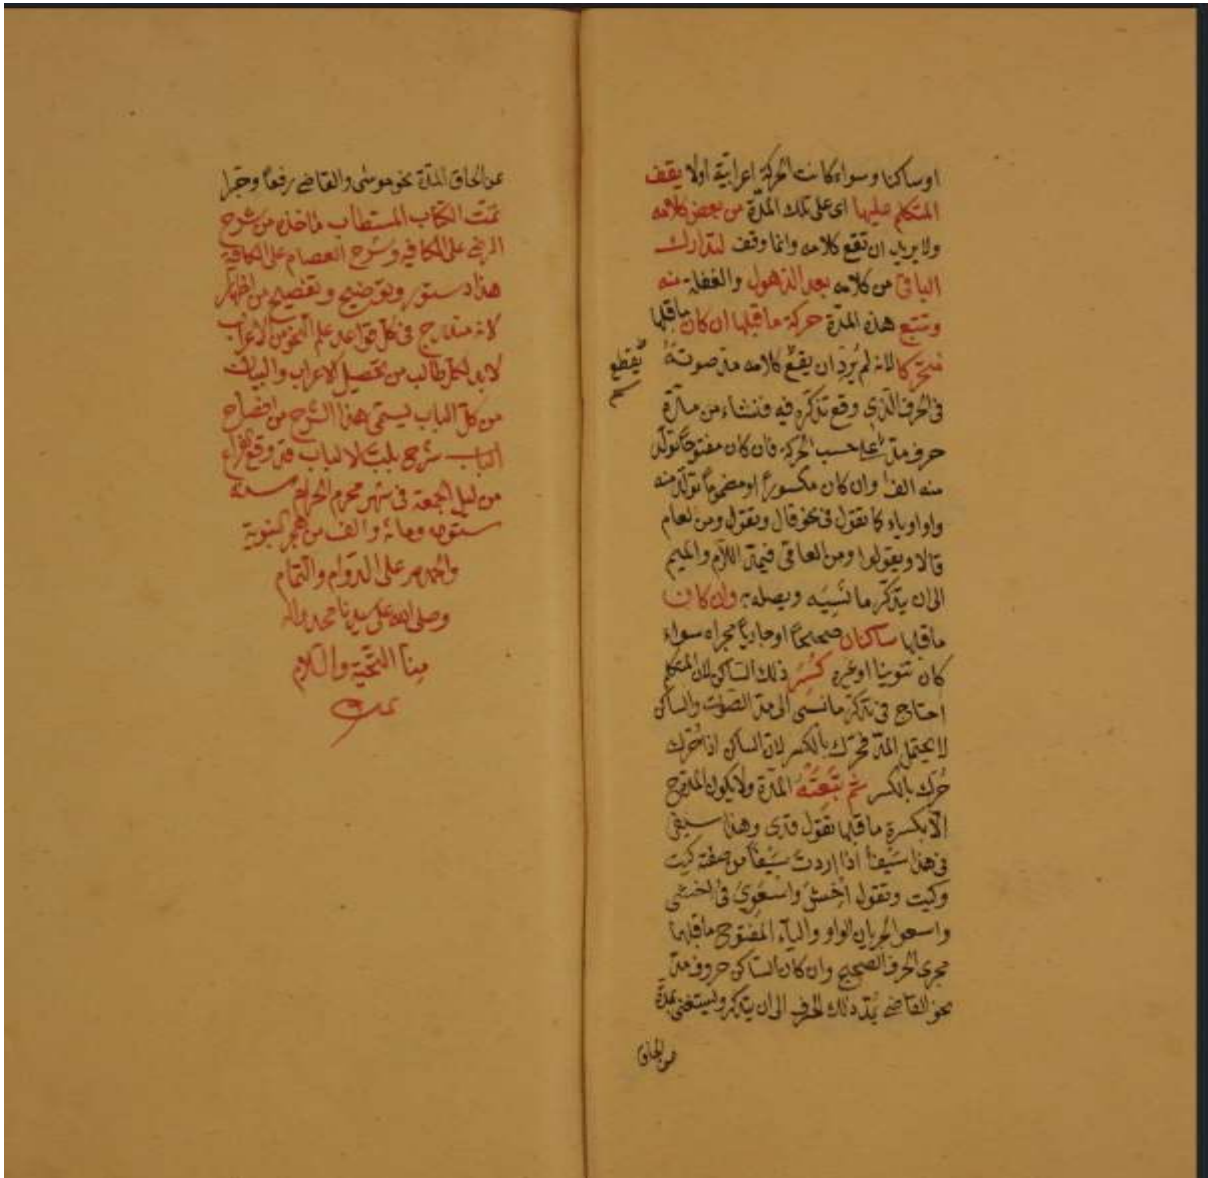 او ساكنا وسواء كانت الحركة اعرابية اولا يقف
المتكلم عليها اى على تلك المدّة من بعض كلامه
ولا يريد ان تقع كلامه وانما وقف لتدارك
الباقى من كلامه بعد الذهول والغفلة منه
وتتبع هذه المدّة حركة ما قبلها ان كان ما قبلها
متحركا لانه لم يُرِد ان يقع كلامه مدّ صوته
يقطع
فى الحرف الذى وقع تذكّره فيه فنشاء من مدّة
حرف مدّ على حسب الحركة فان كان مفتوحاً تولّد
منه الف وان كان مكسوراً او مضموماً تولد منه
واو او ياء كما تقول فى نحو قال ويقول ومن العام
قالا ويقولوا ومن العامى فيمدّ اللام والميم
الى ان يتذكّر ما نسيه ويصله به وان كان
ما قبلها ساكنان صحيحاً او جارياً مجراه سواء
كان تنوينا او غيره كُسِرَ ذلك الساكن لان المتكلم
احتاج فى تذكّر ما نسى الى مدّ الصوت والساكن
لا يحتمل المدّ فحرّك بالكسر لان الساكن اذا حُرّك
حُرّك بالكسر ثم تَبِعَتْهُ المدّة ولا يكون المدّ
الّا بكسرة ما قبلها تقول قدى وهذا سيفنى
فى هذا سَيْفٌ اذا اردت سَيْفاً من صفته كيت
وكيت وتقول اخشى واسعوى فى اخشى
واسعو لجريان الواو والياء المفتوح ما قبلهما
مجرى الحرف الصحيح وان كان الساكن حروف مدّ
نحو القاضى يُمدّ ذلك الحرف الى ان يتذكر ويستغنى بمدّه
عن الحاق
عن الحاق المدّة نحو موسى والقاضى رفعاً وجراً
تمّت الكتاب المستطاب ماخذه من شرح
الرضى على الكافية وشرح العصام على الكافية
هذا دستور وتوضيح وتفصيح من
لانه مندرج فى كل قواعد علم النحو من الاعراب
لابد لكل طالب من تحصيل الاعراب والبيان
من كلّ الباب يسمّى هذا الشرح من افضاح
الباب شرح بلبّ الالباب قد وقع الفراغ
من ليل الجمعة فى شهر محرم الحرام سنه
ستون ومائة والف من هجر النبوية
والحمد لله على الدوام والتمام
وصلى الله على سيدنا محمد واله
منا التحية والسلام
تمت